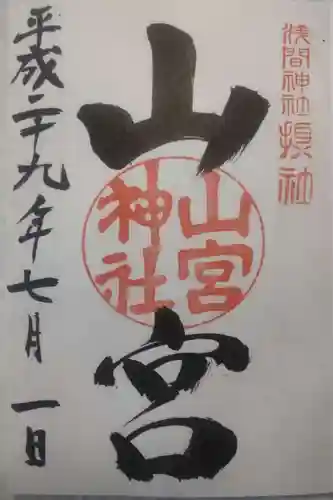 浅間神社摂社
山宮
山宮
神社
平成二十九年七月一日